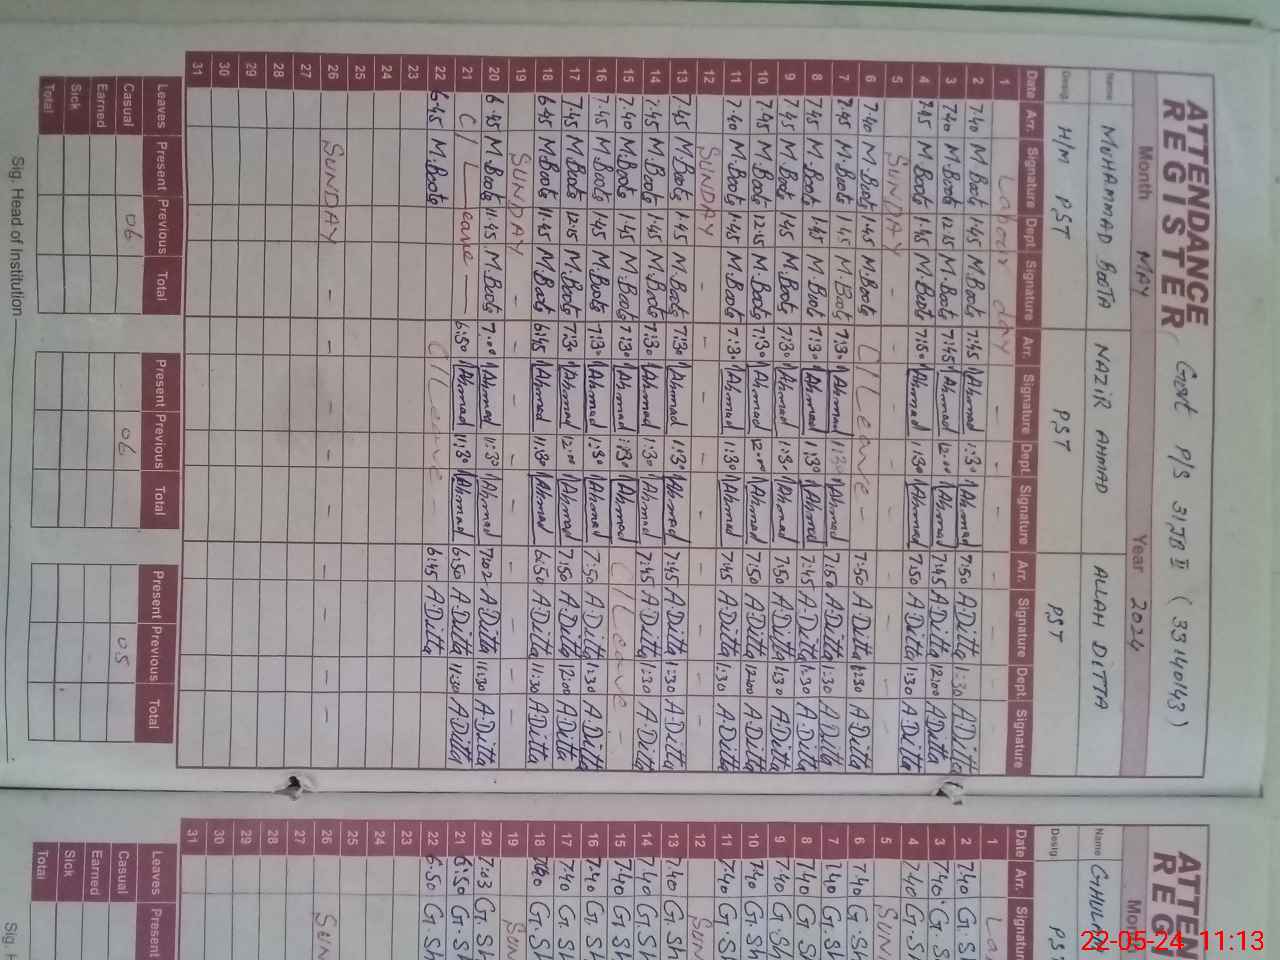 ATTENDANCE
REGISTER Govt P/S 31JB II (33140143)
Month MAY Year 2024
Name MUHAMMAD BOOTA NAZIR AHMAD ALLAH DITTA
Desig: H/M PST PST PST
Date Arr. Signature Dept. Signature Arr. Signature Dept. Signature Arr. Signature Dept. Signature
1 Labour day - - - -
2 7.40 M.Boota 1.45 M.Boota 7:45 Ahmad 1:30 Ahmad 7:50 A.Ditta 1:30 A.Ditta
3 7.40 M.Boota 12.15 M.Boota 7:45 Ahmad 12.00 Ahmad 7:45 A.Ditta 12:00 A.Ditta
4 7.45 M.Boota 1.45 M.Boota 7:50 Ahmad 1:30 Ahmad 7:50 A.Ditta 1:30 A.Ditta
5 SUNDAY - - - -
6 7.40 M.Boota 1.45 M.Boota C/Leave - 7:50 A.Ditta 1:30 A.Ditta
7 7.45 M.Boota 1.45 M.Boota 7:30 Ahmad 1:30 Ahmad 7:50 A.Ditta 1:30 A.Ditta
8 7.45 M.Boota 1.45 M.Boota 7:30 Ahmad 1:30 Ahmad 7:45 A.Ditta 1:30 A.Ditta
9 7.45 M.Boota 1.45 M.Boota 7:30 Ahmad 1:30 Ahmad 7:50 A.Ditta 1:30 A.Ditta
10 7.45 M.Boota 12.15 M.Boota 7:30 Ahmad 12.00 Ahmad 7:50 A.Ditta 12:00 A.Ditta
11 7.40 M.Boota 1.45 M.Boota 7:30 Ahmad 1:30 Ahmad 7:45 A.Ditta 1:30 A.Ditta
12 SUNDAY - - - -
13 7.45 M.Boota 1.45 M.Boota 7:30 Ahmad 1:30 Ahmad 7:45 A.Ditta 1:30 A.Ditta
14 7.45 M.Boota 1.45 M.Boota 7:30 Ahmad 1:30 Ahmad 7:45 A.Ditta 1:30 A.Ditta
15 7.40 M.Boota 1.45 M.Boota 7:30 Ahmad 1:30 Ahmad C/Leave -
16 7.45 M.Boota 1.45 M.Boota 7:30 Ahmad 1:30 Ahmad 7:50 A.Ditta 1:30 A.Ditta
17 7.45 M.Boota 12.15 M.Boota 7:30 Ahmad 12.00 Ahmad 7:50 A.Ditta 12:00 A.Ditta
18 6.45 M.Boota 11.45 M.Boota 6:45 Ahmad 11:30 Ahmad 6:50 A.Ditta 11:30 A.Ditta
19 SUNDAY - - - -
20 6.45 M.Boota 11.45 M.Boota 7:00 Ahmad 11:30 Ahmad 7:02 A.Ditta 11:30 A.Ditta
21 C/Leave - 6:50 Ahmad 11:30 Ahmad 6:50 A.Ditta 11:30 A.Ditta
22 6.45 M.Boota C/Leave - 6:45 A.Ditta
23
24
25
26 SUNDAY - - - - -
27
28
29
30
31
Leaves Present Previous Total Present Previous Total Present Previous Total
Casual 06 06 05
Earned
Sick
Total
Sig. Head of Institution
ATTEN
REG
Mon
Name GHULAM
Desig: PS
Date Arr. Signature
1 La
2 7.40 G.Sh
3 7.40 G.Sh
4 7.40 G.Sh
5 SUN
6 7.40 G.Sh
7 7.40 G.Sh
8 7.40 G.Sh
9 7.40 G.Sh
10 7.40 G.Sh
11 7.40 G.Sh
12 SUN
13 7.40 G.Sh
14 7.40 G.Sh
15 7.40 G.Sh
16 7.40 G.Sh
17 7.40 G.Sh
18 7.00 G.Sh
19 SUN
20 7:03 G.Sh
21 6:50 G.Sh
22 6.50 G.Sh
23
24
25
26 SUN
27
28
29
30
31
Leaves Present
Casual
Earned
Sick
Total
Sig.
22-05-24 11:13